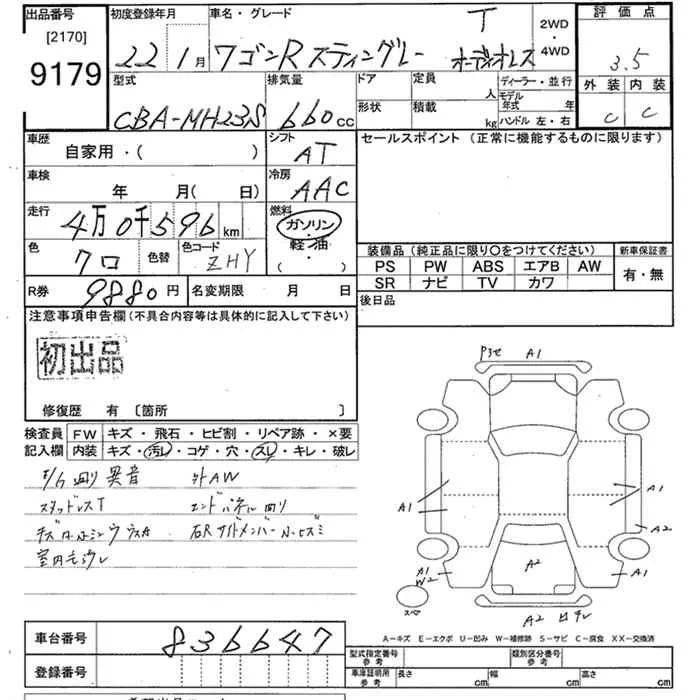 出品番号
[2170]
9179
初度登録年月
22 1月
車名・グレード
T
ワゴンR スティングレー オーディオレス
2WD
・
4WD
評価点
3.5
外装 内装
C C
型式
CBA-MH23S
排気量
660cc
ドア
形状
定員
人
積載
kg
ディーラー・並行
モデル年式 年
ハンドル 左・右
車歴
自家用・( )
シフト
AT
車検
年 月( 日)
冷房
AAC
走行
4万0千596km
燃料
ガソリン
軽・油
( ・ )
色
クロ
色替
色コード
ZHY
R券
9880円
名変期限 月 日
セールスポイント(正常に機能するものに限ります)
装備品(純正品に限り〇をつけてください)
PS PW ABS エアB AW
SR ナビ TV カワ
新車保証書
有・無
後日品
注意事項申告欄(不具合内容等は具体的に記入して下さい)
初出品
修復歴 有 〔箇所 〕
検査員記入欄
FW キズ・飛石・ヒビ割・リペア跡・×要
内装 キズ・汚レ・コゲ・穴・スレ・キレ・破レ
異音 外AW
スタッドレスT エンドパネル
室内
A1
A1
A1
A2
A1
W2
A2
A1
スペア
A2
A-キズ E-エクボ U-凹み W-補修跡 S-サビ C-腐食 XX-交換済
車台番号
836647
登録番号
型式指定番号
参考
類別区分番号
参考
車庫証明用
参考
長さ cm
幅 cm
高さ cm